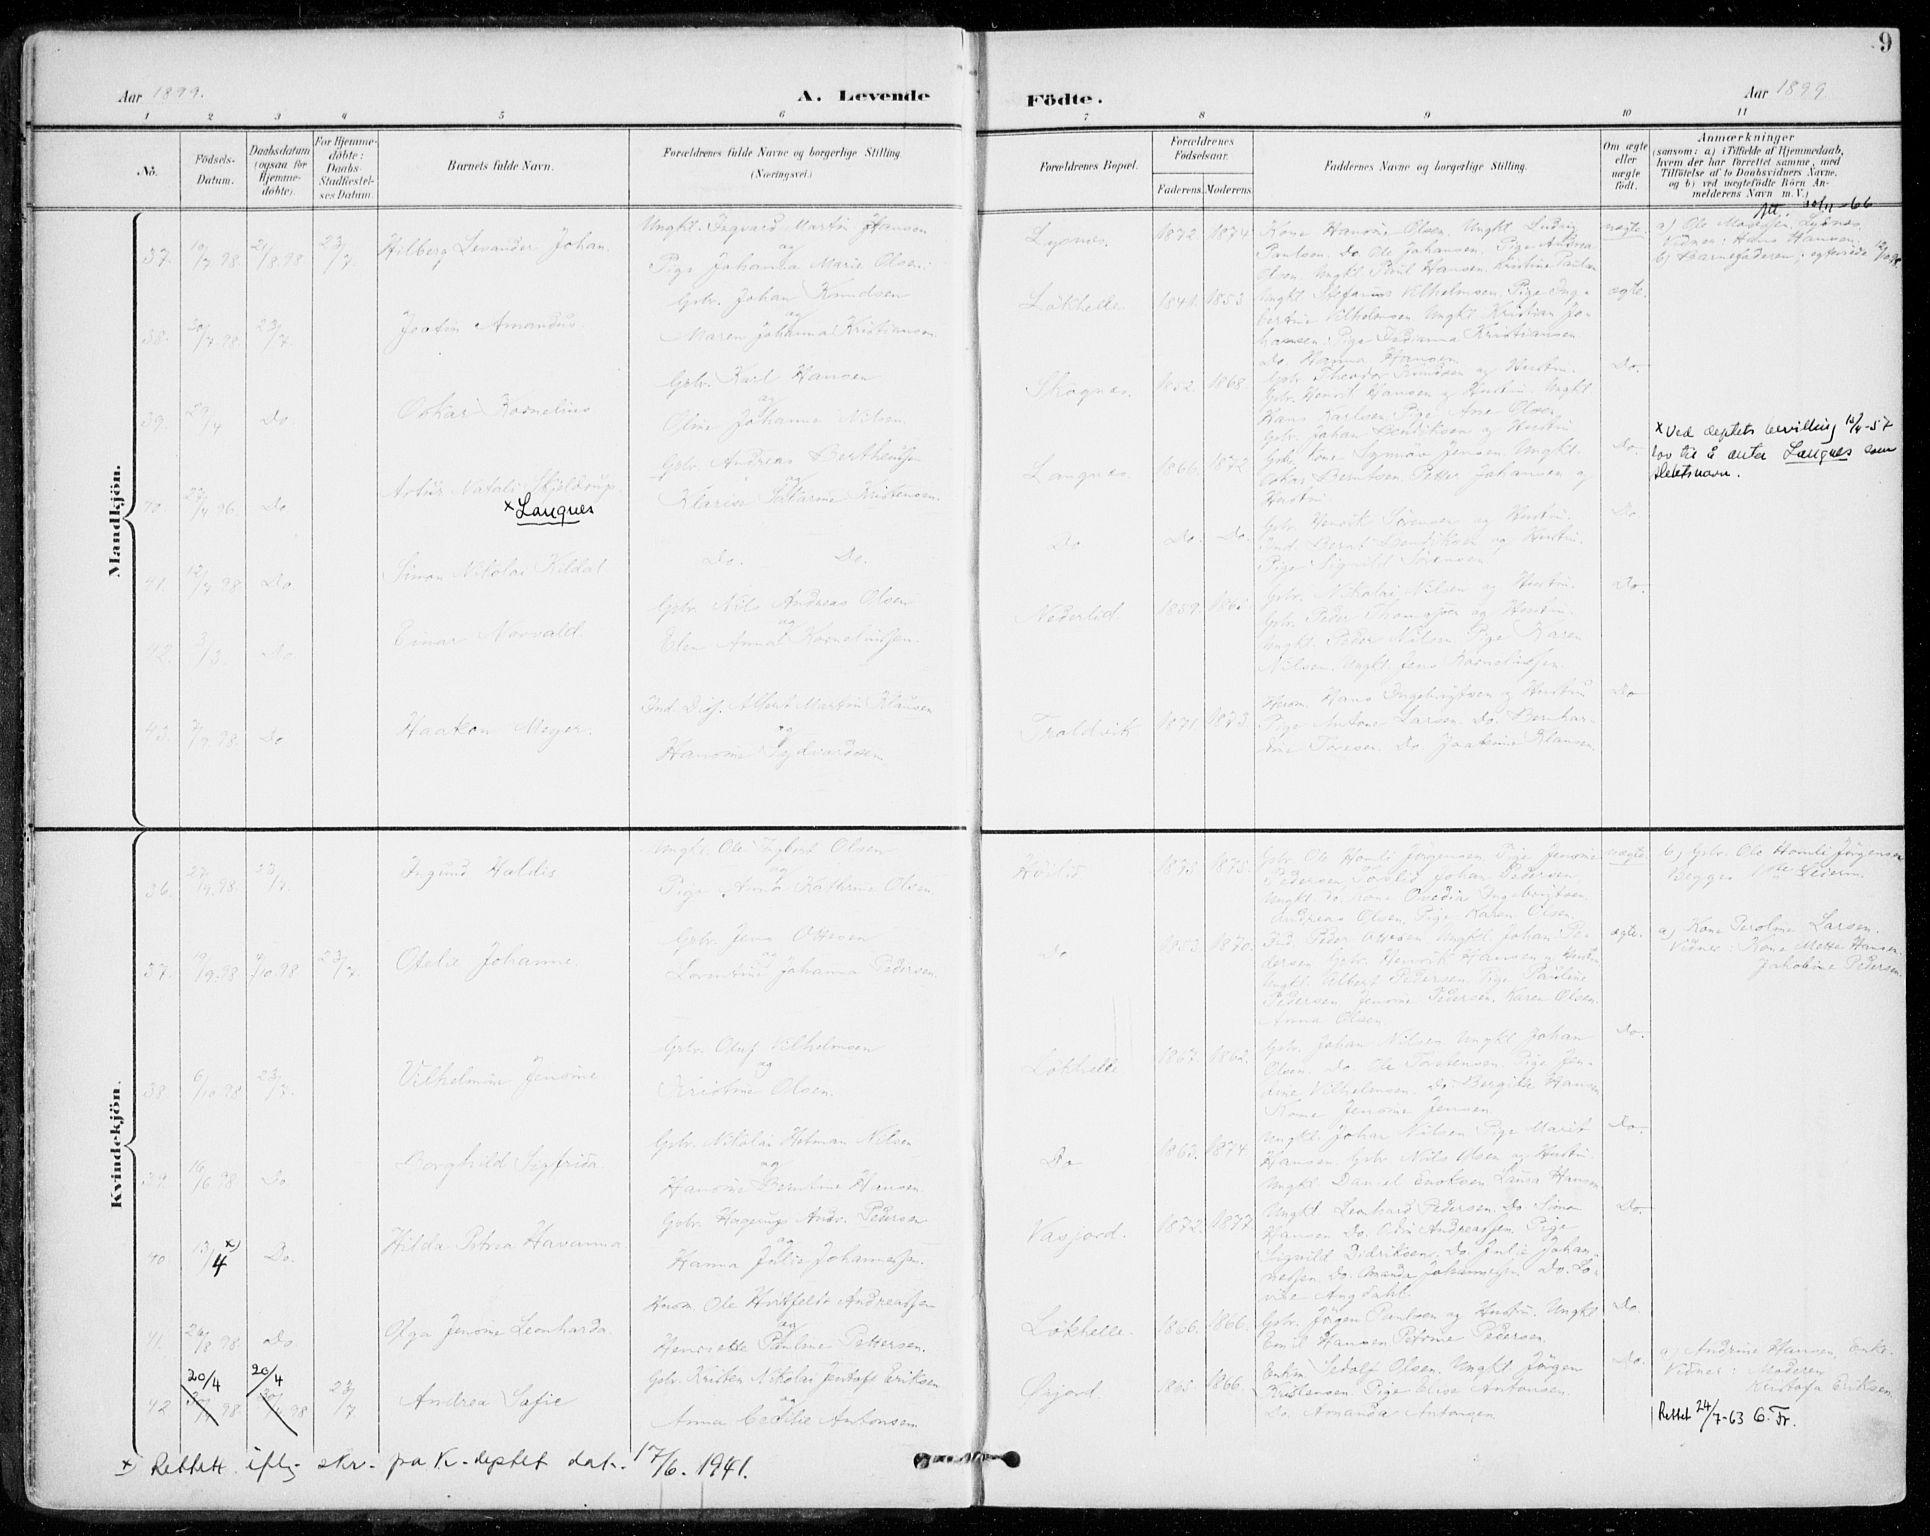 9
Aar 1899.
A. Levende
Födte.
Aar 1899.
1 2 3 4 5 6 7 8 9 10 11
No.
Födsels-
Datum.
Daabsdatum
(ogsaa for
Hjemme-
døbte).
For Hjemme-
døbte:
Daabs-
Stadfæstel-
ses Datum.
Barnets fulde Navn.
Forældrenes fulde Navne og borgerlige Stilling.
(Næringsvei.)
Forældrenes Bopæl.
Forældrenes
Födselsaar.
Faderens. Moderens.
Faddernes Navne og borgerlige Stilling.
Om ægte
eller
uægte
født.
Anmærkninger
(saasom: a) i Tilfælde af Hjemmedaab,
hvem der har forrettet samme, med
Tilföielse af to Daabsvidners Navne,
og b) ved uægtefödte Börn An-
melderens Navn m.V.)
Mandkjön.
37. 19/7 98 21/8 98 23/7 Hilberg Levander Johan.
Ungkl. Ingvard Martin Hansen
og
Pige Johanna Marie Olsen.
Lysnes. 1872. 1874.
Kone Hansine Olsen. Ungkl. Ludvig
Paulsen. Do. Ole Johansen. Pige Andrea
Olsen. Ungkl. Poul Hansen. Kristine Paulsen
uægte.
a) Ole Madssen, Lysnes.
Vidner: Hans Hansen.
b) Barnefaderen;
38. 20/7 98 23/7.
Gbr. Johan Knudsen
og
Maren Johanna Kristiansen
Løkhelle. 1841. 1853.
Ungkl. Stefanus Vilhelmsen. Pige Ing-
bertine Vilhelmsen. Ungkl. Kristian Jo-
hansen. Pige Kristiansen
Do. Hanna Hansen.
ægte.
39. 29/4 Do. Oskar Kornelius
Gbr. Karl Hansen
og
Oline Johanna Nilsen.
Skognes. 1852. 1868.
Gbr. Theodor Knudsen og Hustru.
Gbr. Henrik Hansen og Hustru. Ungkl.
Hans Karlsen. Pige Ane Olsen.
Do.
40. 96. Do Artur Natali Skjeldrup.
× Langnes
Gbr. Andreas Bertheussen
og
Klarisa Katarine Kristensen.
Langnes. 1866. 1872
Gbr. Johan Hendriksen og Hustru
Gbr. Jensen. Ungkl.
Oskar Berntsen. Petter Johansen og
Hustru.
Do.
× Ved deptets bevilling 13/4-57
lov til å anta Langnes som
slektsnavn.
41. 12/7 98 Do Simon Nikolai Kildal
Do. Do.
Do Do. Do.
Gbr. Henrik Sørensen og Hustru.
Ind. Bernt Hendriksen og Hustru.
Pige Sigvild Sørensen
Do
42. 3/3. Do. Einar Norvald.
Gbr. Nils Andreas Olsen
og
Elen Anna Korneliussen.
Nederlid. 1859. 1865.
Gbr. Nikolai Nilsen og Hustru.
Gbr. Peder Thomassen og Hustru.
Ungkl. Peder Nilsen. Pige Karen
Nilsen. Ungkl. Jens Korneliussen.
Do.
43. 98. Do Haakon Meyer.
Ind. Albert Martin Klausen
og
Hansine Sydvardsen
Traldvik 1871. 1873.
Husm. Hans Ingebrigtsen og Hustru
Pige Antone Larsen. Do. Bernhar-
dine Toresen. Do. Joakime Klausen.
Do
Kvindekjön.
36. 27/9 98. 23/7. Ingund Haldis
Ungkl. Ole Ingbert Olsen
og
Pige Anna Kathrine Olsen.
1873. 1875.
Gbr. Ole Hamli Jørgensen. Pige Jensine
Pedersen, Johan Pedersen,
Ungkl. Do. Kone Ovedia Ingebrigtsen.
Andreas Olsen. Pige Karen Olsen.
uægte.
b) Gbr. Ole Hamli Jørgensen
Begges 1ste Leierm.
37. 19/9 98 9/10 98 23/7. Otelie Johanne.
Gbr. Jens Ottesen
og
Lorentine Johanna Pedersen.
Do 1853. 1870.
Ind. Peder Ottesen. Ungkl. Johan Pe-
dersen. Gbr. Henrik Hansen og Hustru.
Ungkl. Albert Pedersen. Pige Pauline
Pedersen. Jensine Pedersen. Karen Olsen.
Anna Olsen.
ægte.
a) Kone Peroline Larsen.
Vidner: Kone Mette Hansen.
Jakobine Pedersen.
38. 6/10 98 23/7. Vilhelmine Jensine
Gbr. Oluf Vilhelmsen
og
Kristine Olsen.
Løkhelle 1867. 1862.
Gbr. Johan Nilsen. Ungkl. Johan
Olsen. Do. Ole Torstensen. Pige Jen-
sine Vilhelmsen. Do. Bergitte Hansen
Kone Jensine Jensen.
Do.
39. 16/6 98 Do Borghild Sigfrida.
Gbr. Nikolai Hetman Nilsen
og
Hansine Berntine Hansen.
Do 1863. 1874.
Ungkl. Johan Nilsen. Pige Marit
Hansen. Gbr. Nils Olsen og Hustru.
Ungkl. Daniel Enoksen. Laura Hansen
Do.
40 13/4 ×) Do. Hilda Petrea Havanna
Gbr. Hagerup Andr. Pedersen
og
Hanna Julie Johannessen.
Vasjord. 1872. 1877.
Ungkl. Leonhard Pedersen. Do. Simon
Hansen. Do. Odin Andreassen. Pige
Sigvild Didriksen. Do. Julie Johan-
nessen. Do. Amanda Johannessen. Do. Lo-
vise Angdahl.
Do.
41. 26/8 98. Do. Olga Jensine Leonharda.
Husm. Ole Hvitfeldt Andreassen
og
Henriette Pauline Pettersen.
Løkhelle. 1866. 1866.
Gbr. Jørgen Paulsen og Hustru. Ungkl.
Emil Hansen. Petrine Pedersen.
Do.
42 20/4 20/4 23/7 Andrea Sofie
Gbr. Kristen Nikolai Jentoft Eriksen
og
Anna Cecilie Antonsen
Ørjord. 1865. 1866.
Enkm. Sedolf Olsen. Ungkl. Jørgen
Kristensen. Pige Elise Antonsen.
Do. Amanda Antonsen.
Do.
a) Andrine Hansen, Enke.
Vidner: Moderen
Kristofa Eriksen.
Rettet 24/7-63 G. Fr.
×) Rettet iflg. skr. fra K.-deptet dat. 17/6. 1941.